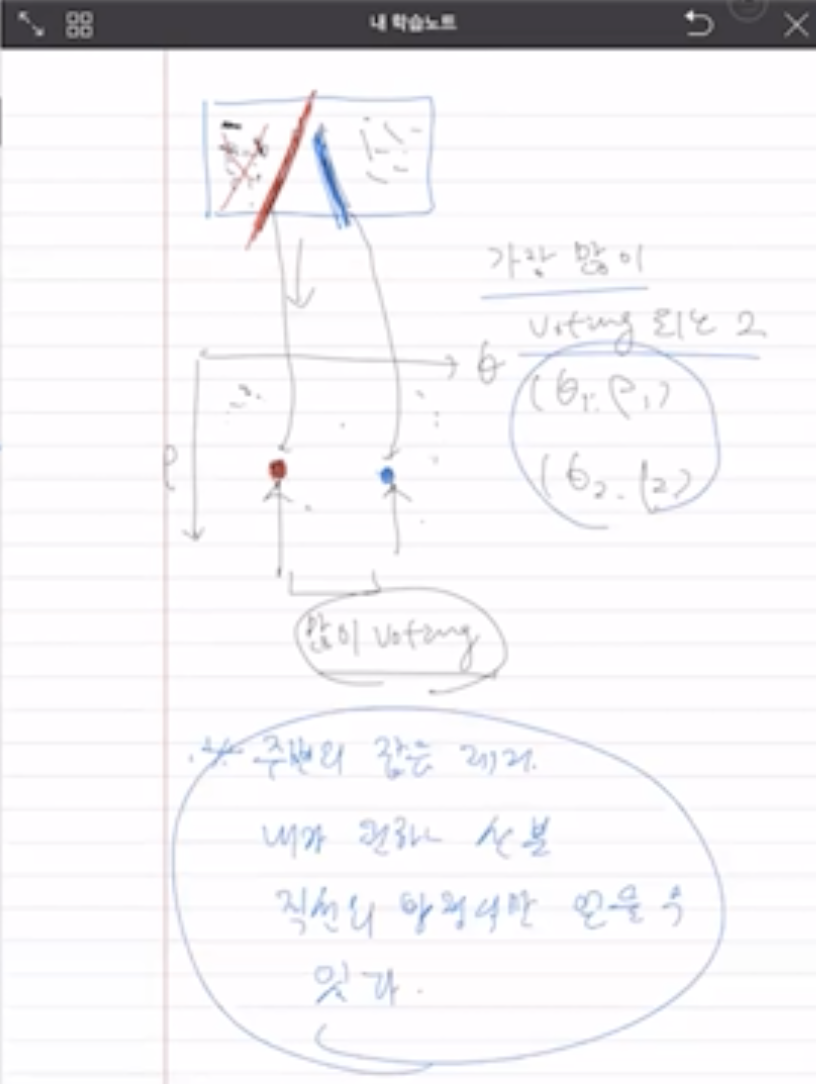 내 학습노트
가장 많이
voting 되는 2
θ
(θ1, ρ1)
ρ
(θ2, ρ2)
많이 voting
※ 주변의 잡음 제거.
내가 원하는 선분
직선의 방정식만 얻을 수
있다.